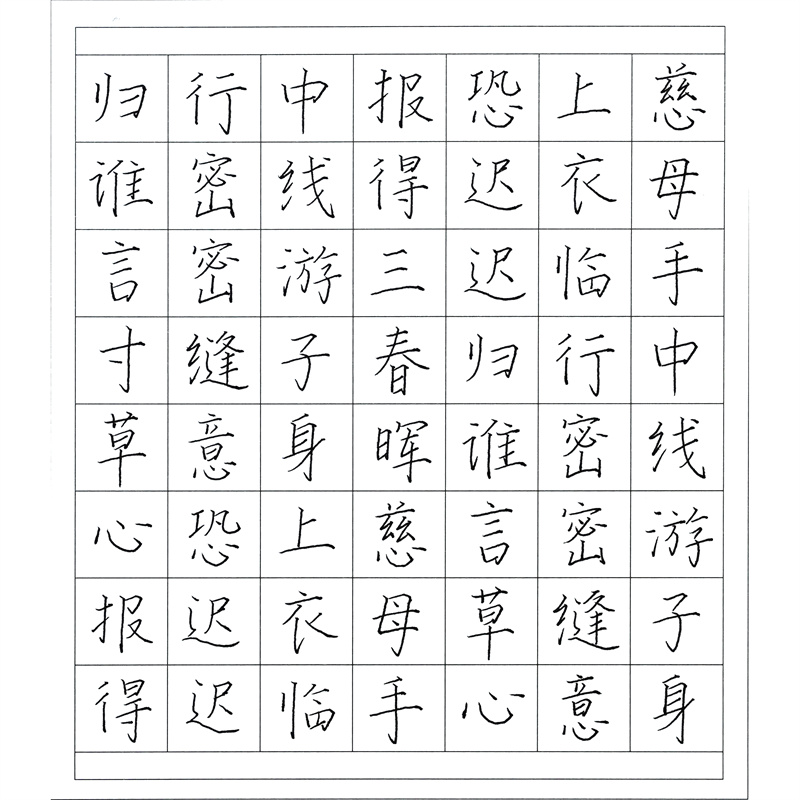 慈母手中线游子身
上衣临行密密缝意
恐迟迟归谁言草心
报得三春晖慈母手
中线游子身上衣临
行密密缝意恐迟迟
归谁言寸草心报得